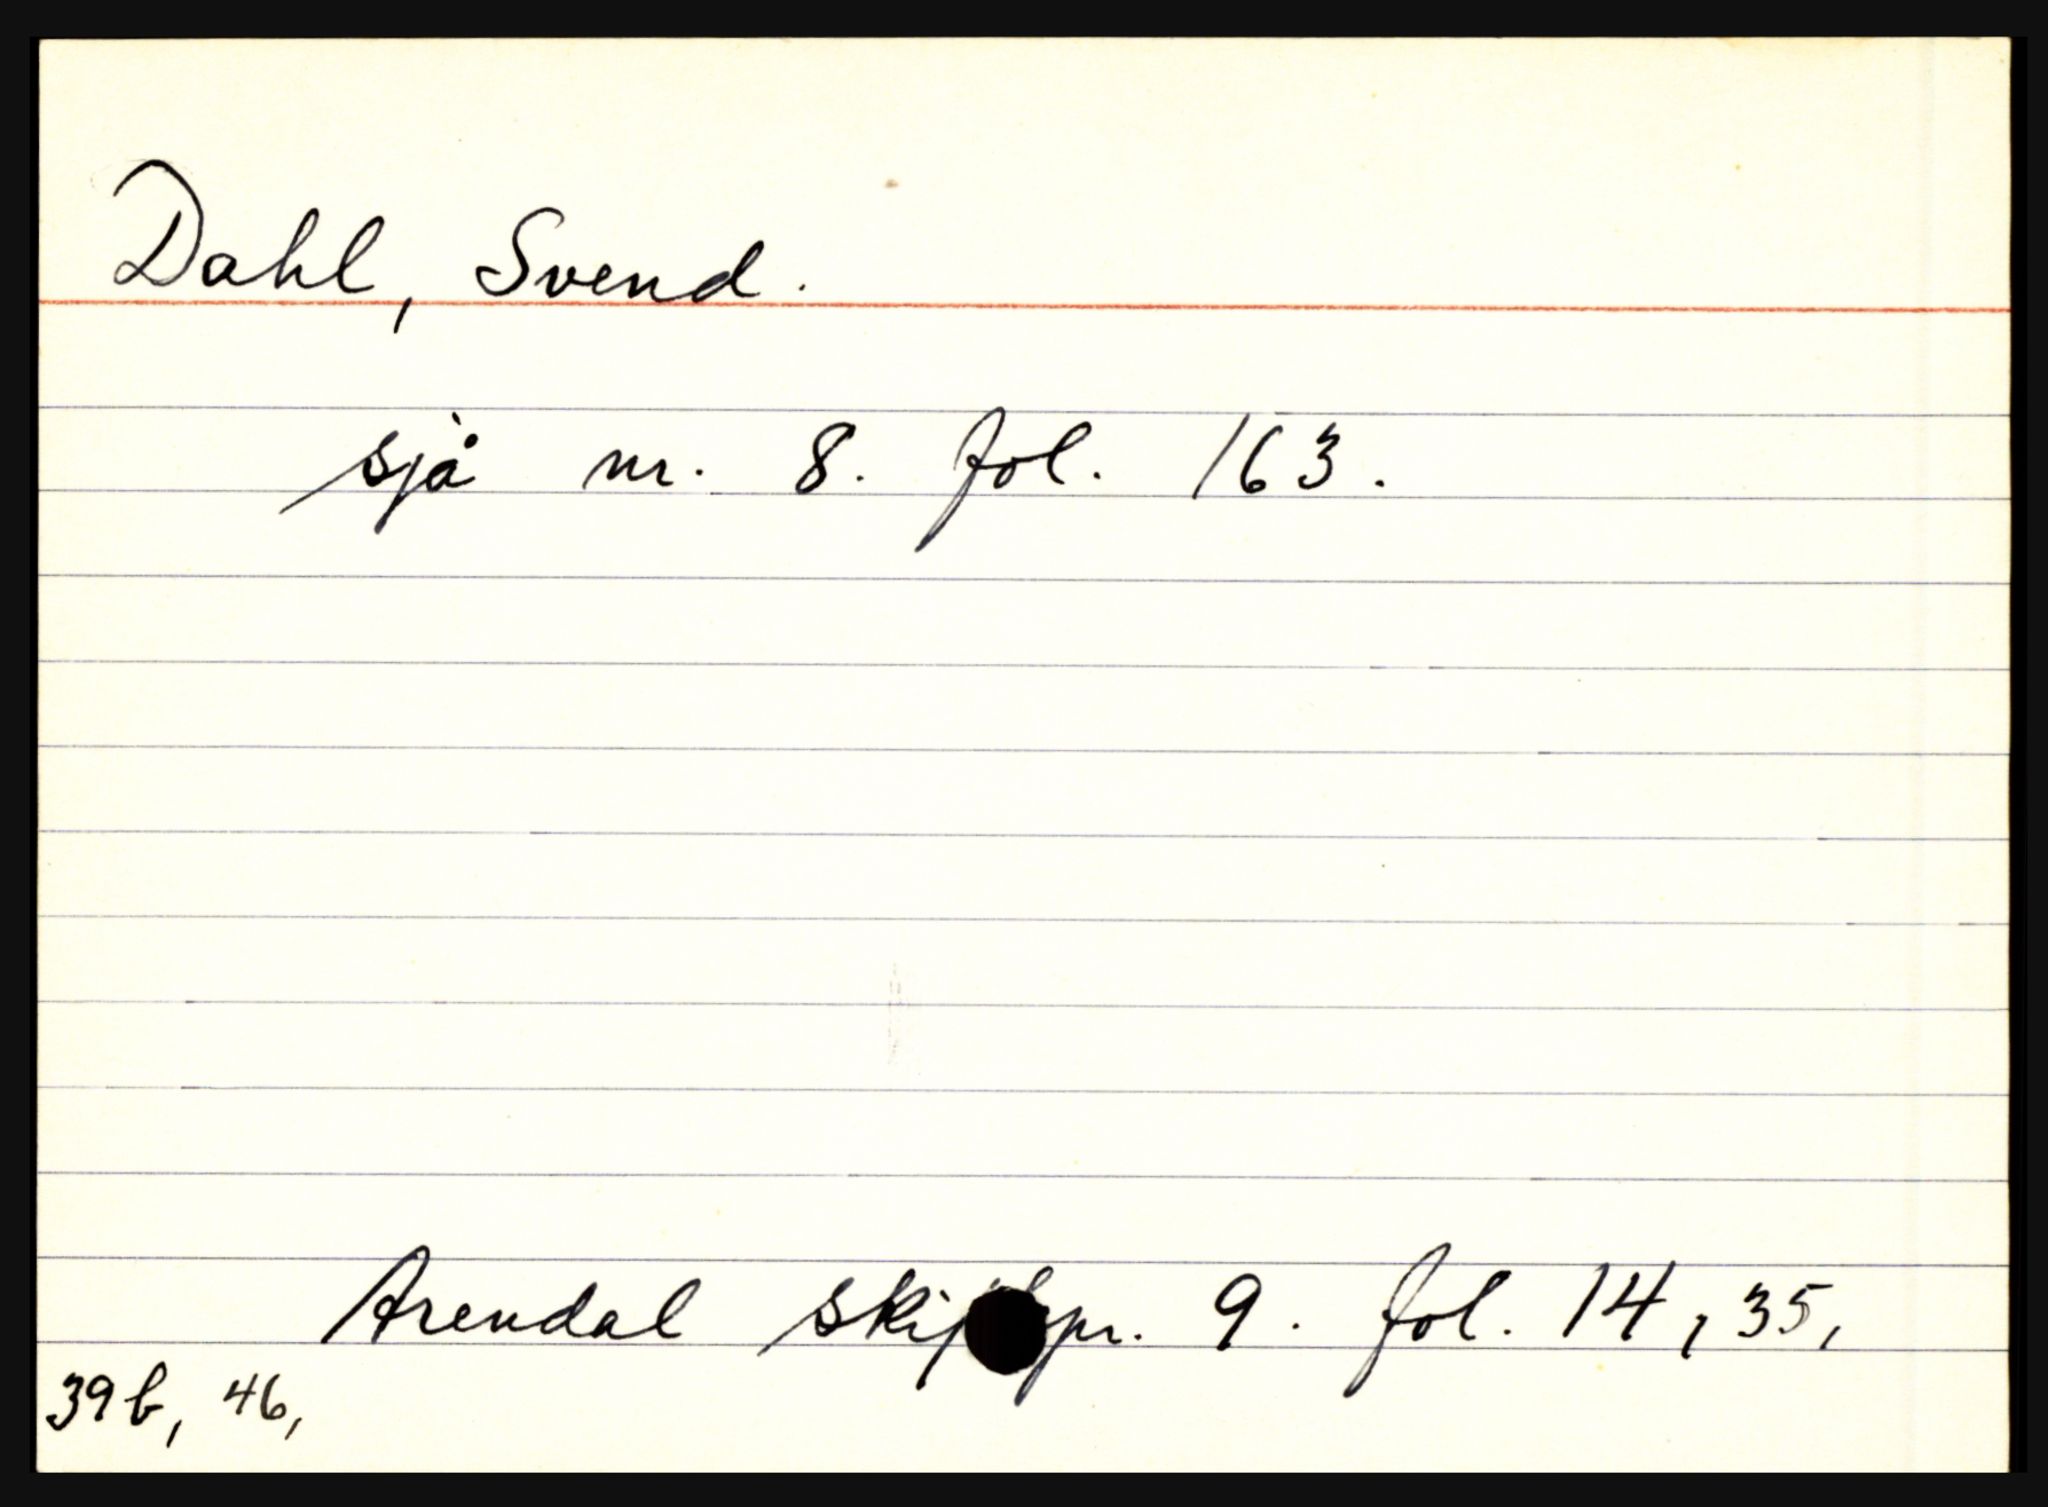 Dahl, Svend.
sjå nr. 8. fol. 163.
Arendal 9. fol. 14, 35,
39b, 46,